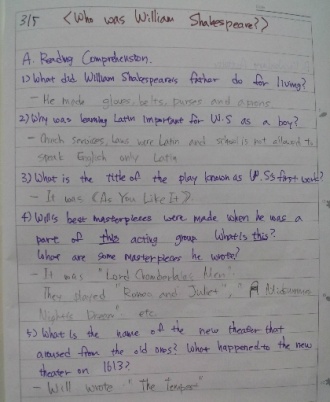 3/5 <Who was William Shakespeare?>
A. Reading Comprehension.
1) What did William Shakespeare's father do for living?
- He made gloves, belts, purses and aprons
2) Why was learning Latin important for W.S as a boy?
- Church services, laws were Latin and school is not allowed to
speak English only Latin
3) What is the title of the play known as W.S's first work?
- It was <As You Like It>
4) Will's best masterpieces were made when he was a
part of this acting group What is this?
What are some masterpieces he wrote?
- It was "Lord Chamberlain's Men"
They played "Romeo and Juliet", "A Midsummer
Nights Dream" etc.
5) What is the name of the new theater that
aroused from the old ones? What happened to the new
theater on 1613?
- Will wrote "The Tempest"